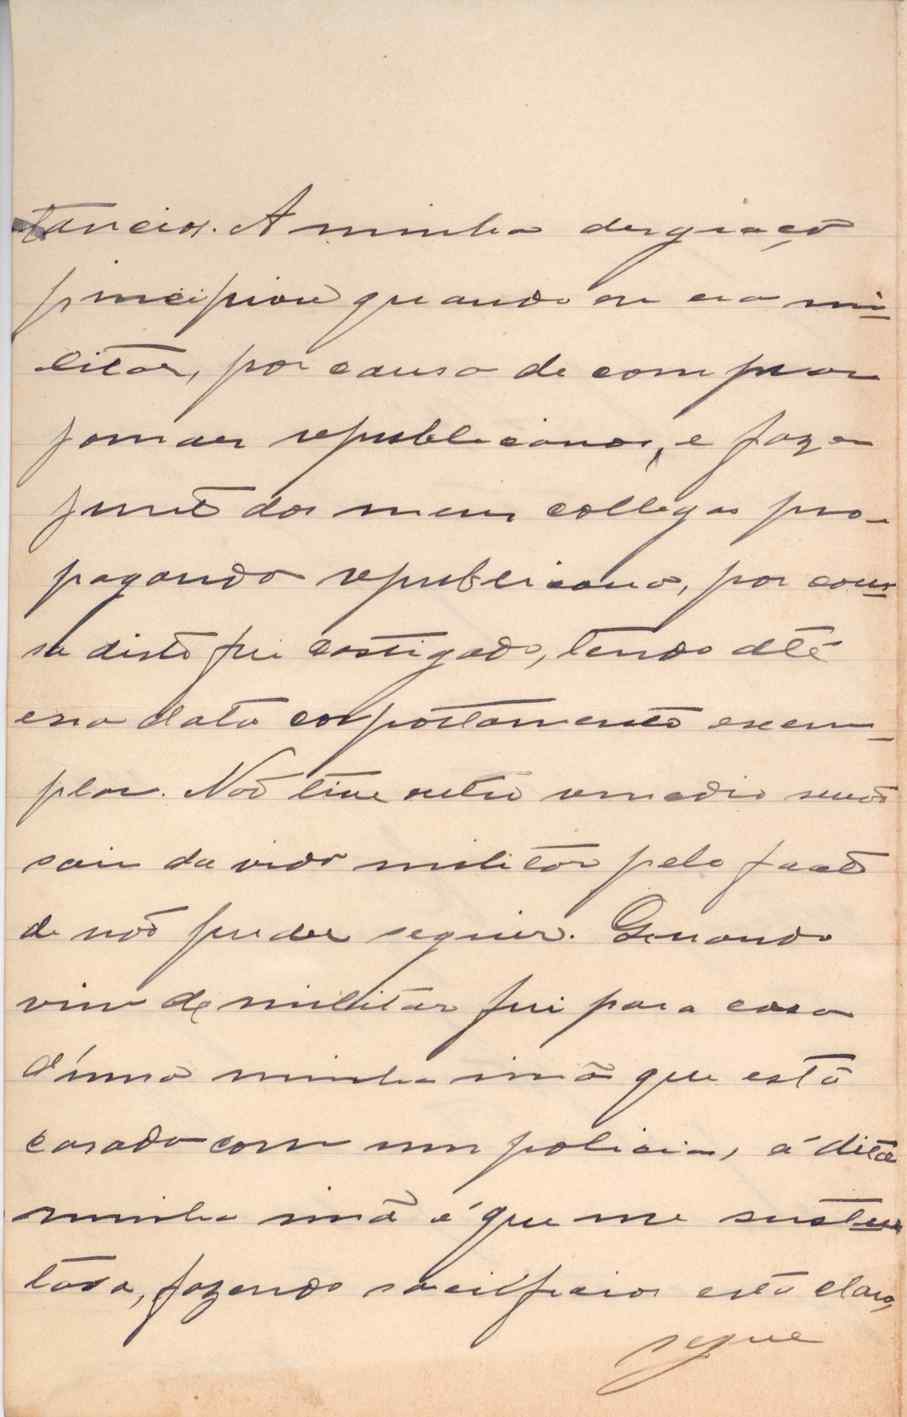 tancias. A minha desgraça
principiou quando eu era mi-
litar, por causa de comprar
jornaes republicanos, e fazer
junto dos meus collegas pro-
paganda republicana, por cau-
sa disto fui castigado, tendo até
essa data comportamento exem-
plar. Não tive outro remedio senão
sair da vida militar pelo facto
de não puder seguir. Quando
vim de militar fui para casa
d'uma minha irmã que está
casada com um policia, a dita
minha irmã é que me susten-
tava, fazendo sacrificios está claro,
segue